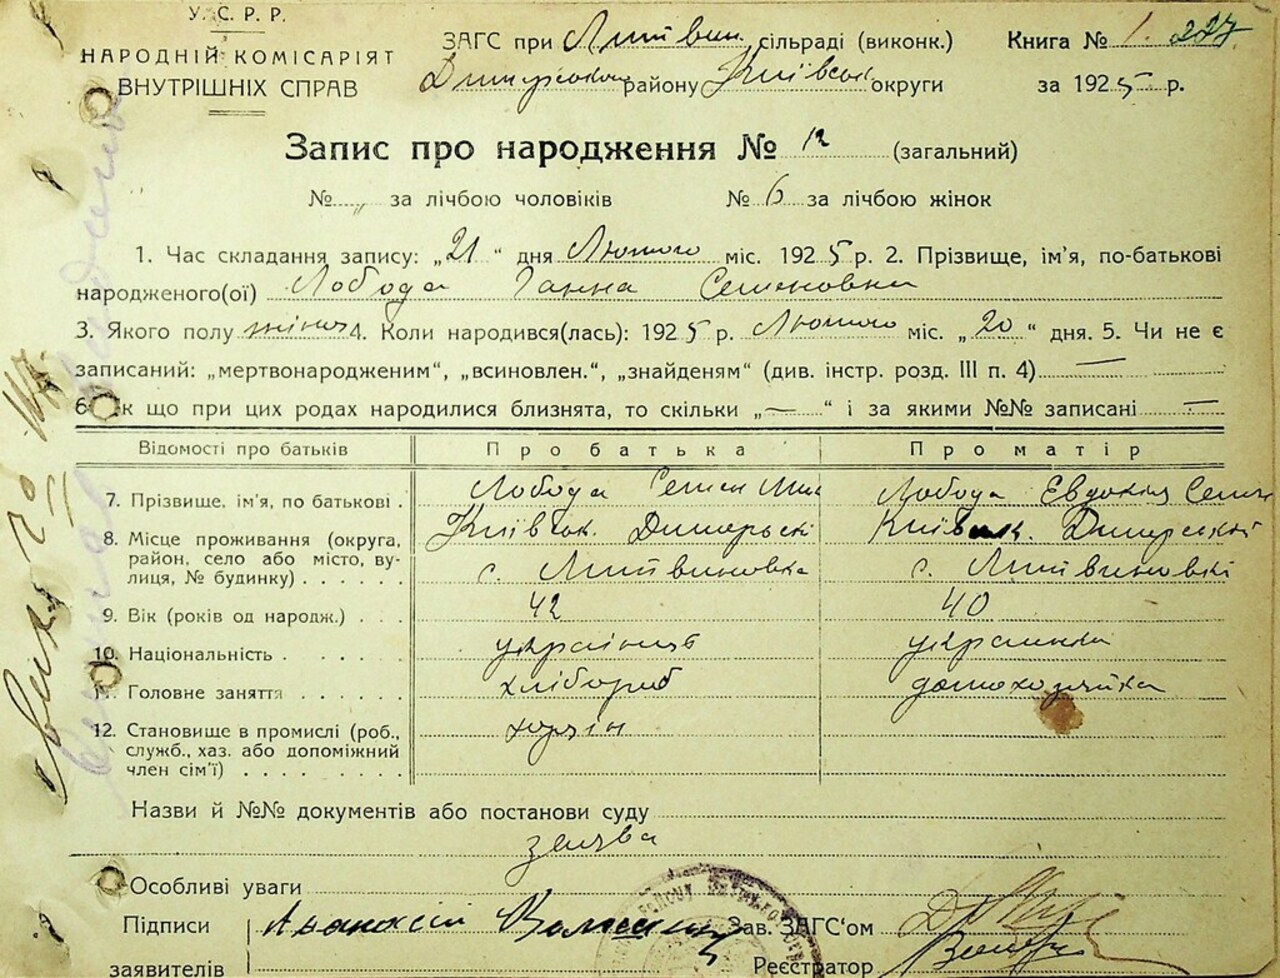 У. С. Р. Р.
НАРОДНІЙ КОМІСАРІЯТ
ВНУТРІШНІХ СПРАВ
ЗАГС при Литвин. сільраді (виконк.) Книга № 1. 227
Димерськом району Київськ округи за 1925 р.
Запис про народження № 12 (загальний)
№ „ за лічбою чоловіків № 6 за лічбою жінок
1. Час складання запису: „21“ дня Лютого міс. 1925 р. 2. Прізвище, ім'я, по-батькові
народженого(ої) Лобода Ганна Семеновна
3. Якого полу жіноч 4. Коли народився(лась): 1925 р. Лютого міс. „20“ дня. 5. Чи не є
записаний: „мертвонародженим“, „всиновлен.“, „знайденям“ (див. інстр. розд. III п. 4) —
6. Як що при цих родах народилися близнята, то скільки „—“ і за якими №№ записані —
Відомості про батьків Про батька Про матір
7. Прізвище, ім'я, по батькові . Лобода Семен Лобода Євдокія Семен
8. Місце проживання (округа, район, село або місто, вулиця, № будинку) . . . . . .
Київськ. Димерськ Київськ. Димерській
с. Литвиновка с. Литвиновкі
9. Вік (років од народж.) . . . 42 40
10. Національність . . . . . . українець украинка
11. Головне заняття . . . . . . хлібороб домохозяйка
12. Становище в промислі (роб., хозяін
служб., хаз. або допоміжний
член сім'ї) . . . . . . . .
Назви й №№ документів або постанови суду
заява
Особливі уваги
Підписи Афанасій Зав. ЗАГС'ом
заявителів Реєстратор